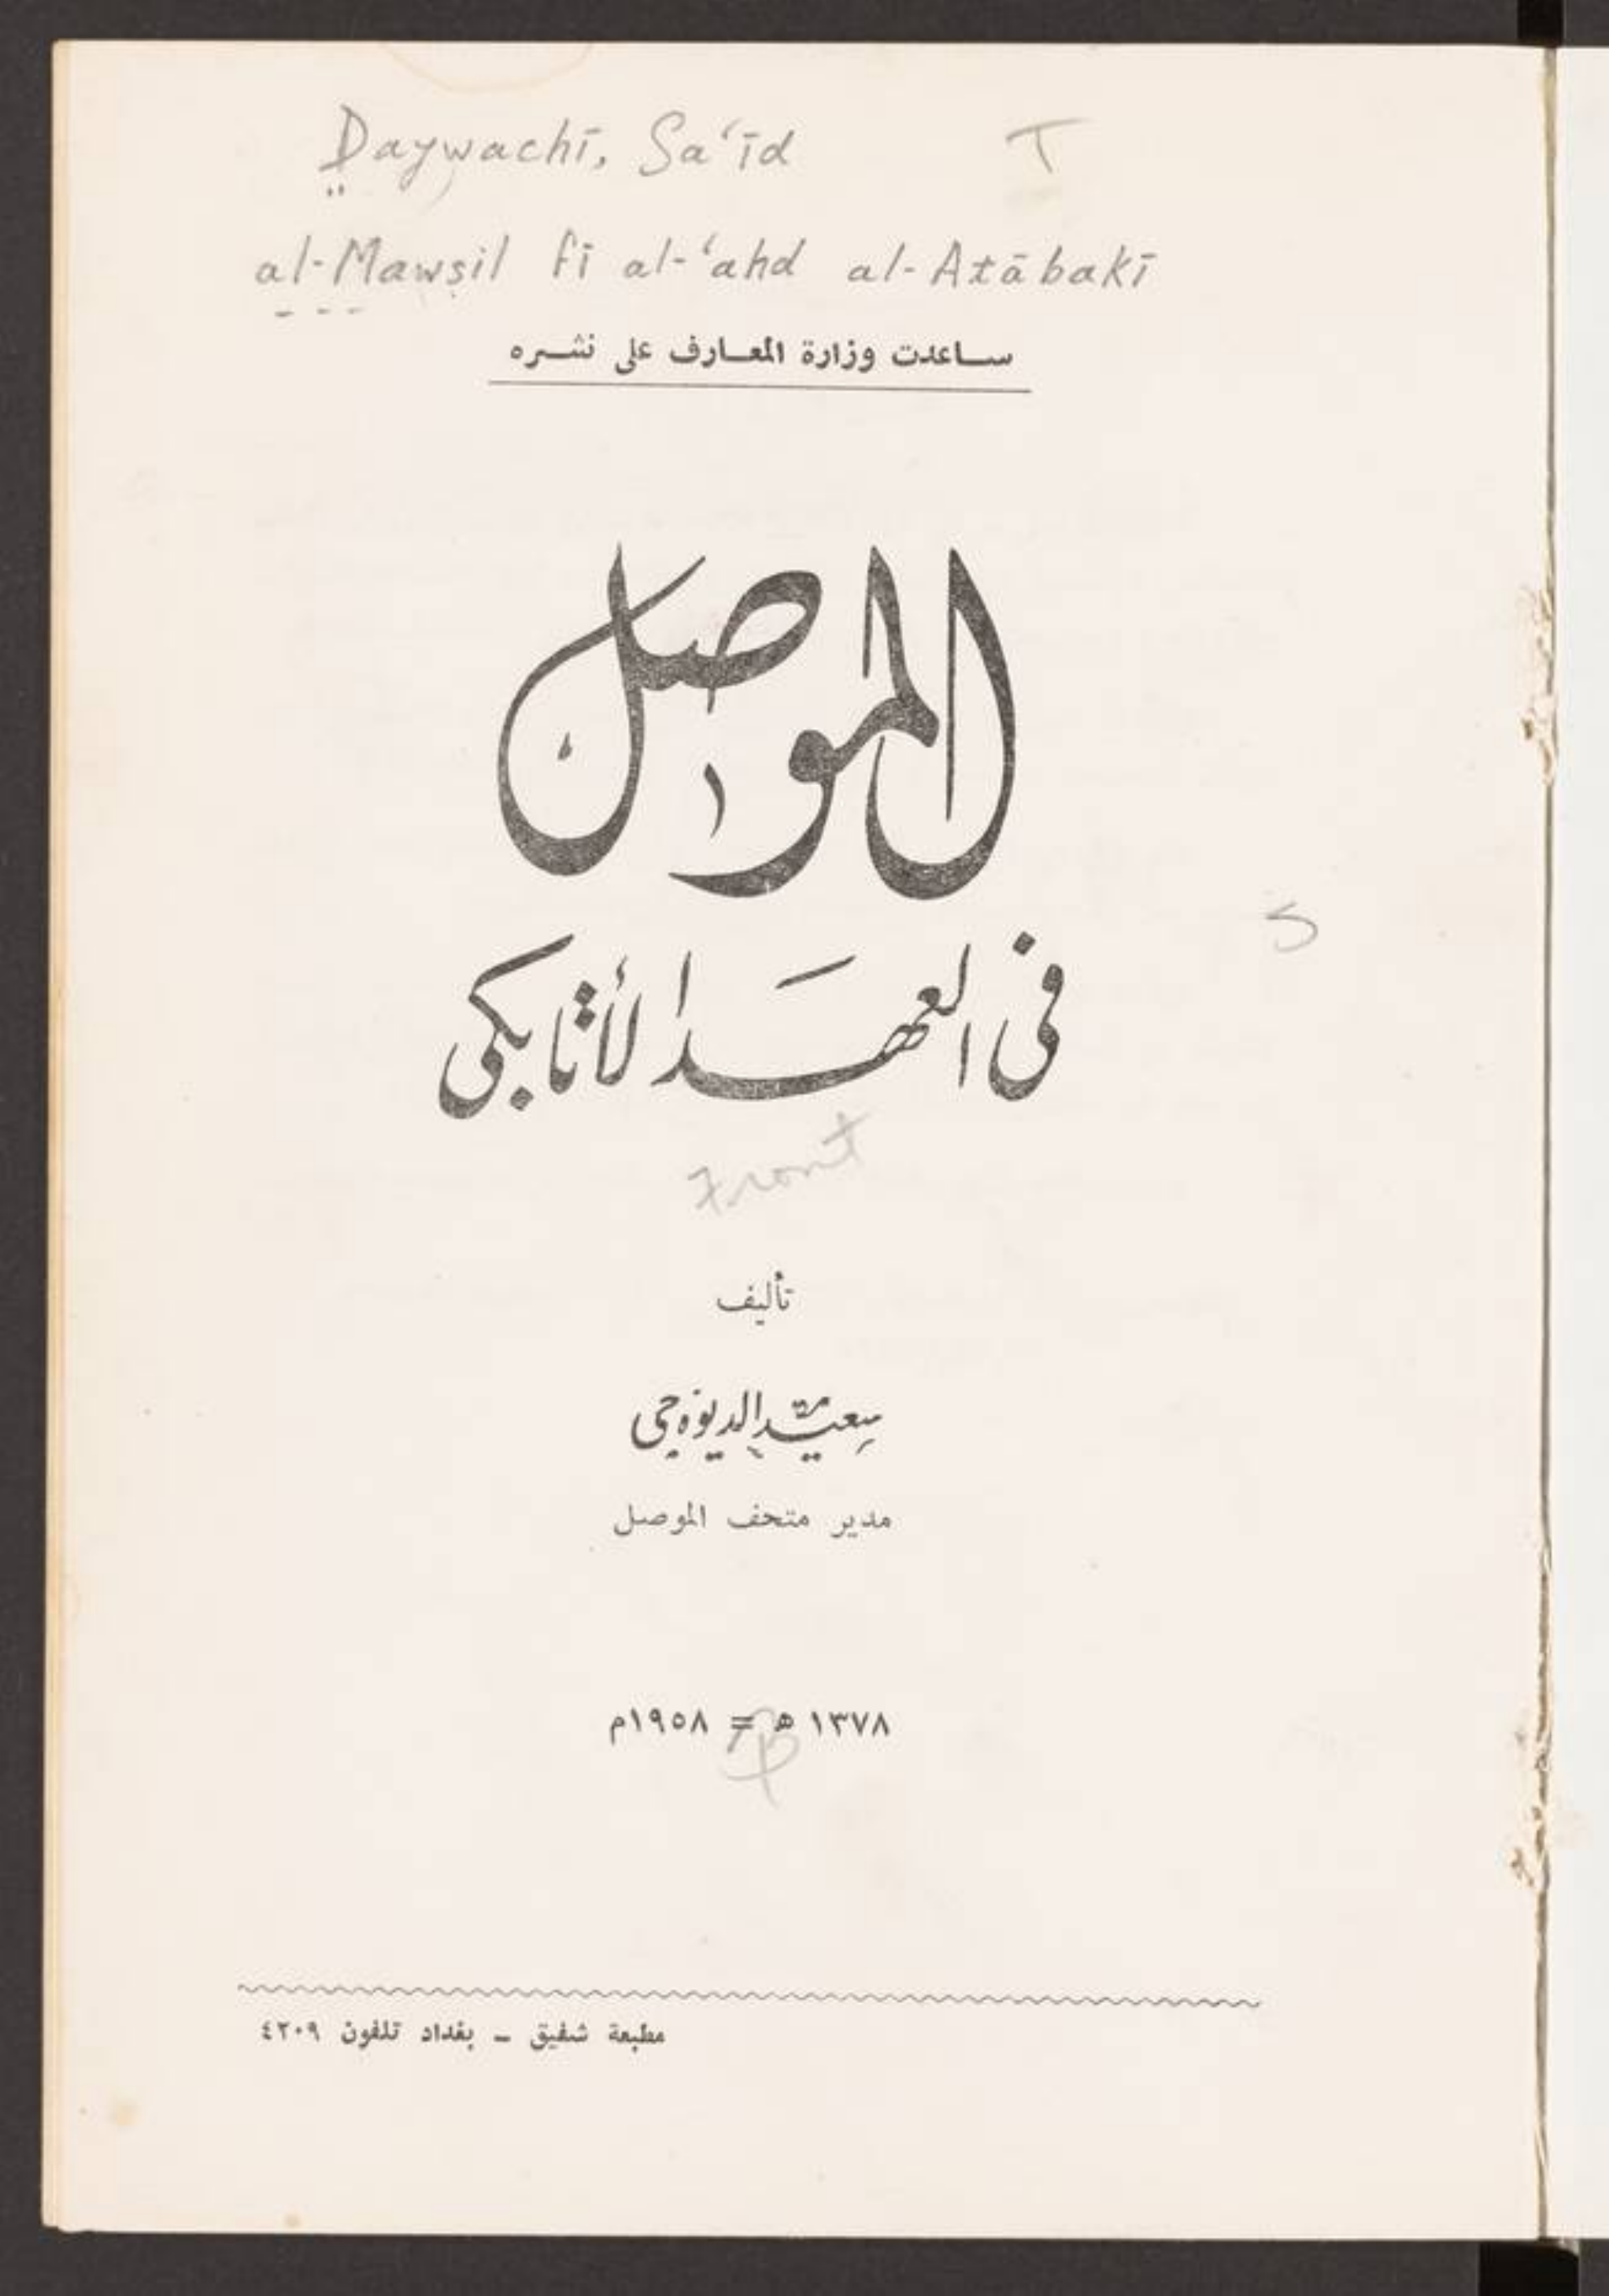 Daywachī, Sa‘īd T
al-Mawṣil fī al-‘ahd al-Atābakī
ساعدت وزارة المعارف على نشره
الموصل
في العهد الأتابكي
S
Front
تأليف
سعيد الديوه جي
مدير متحف الموصل
١٣٧٨ هـ = ١٩٥٨م
مطبعة شفيق - بغداد تلفون ٤٢٠٩